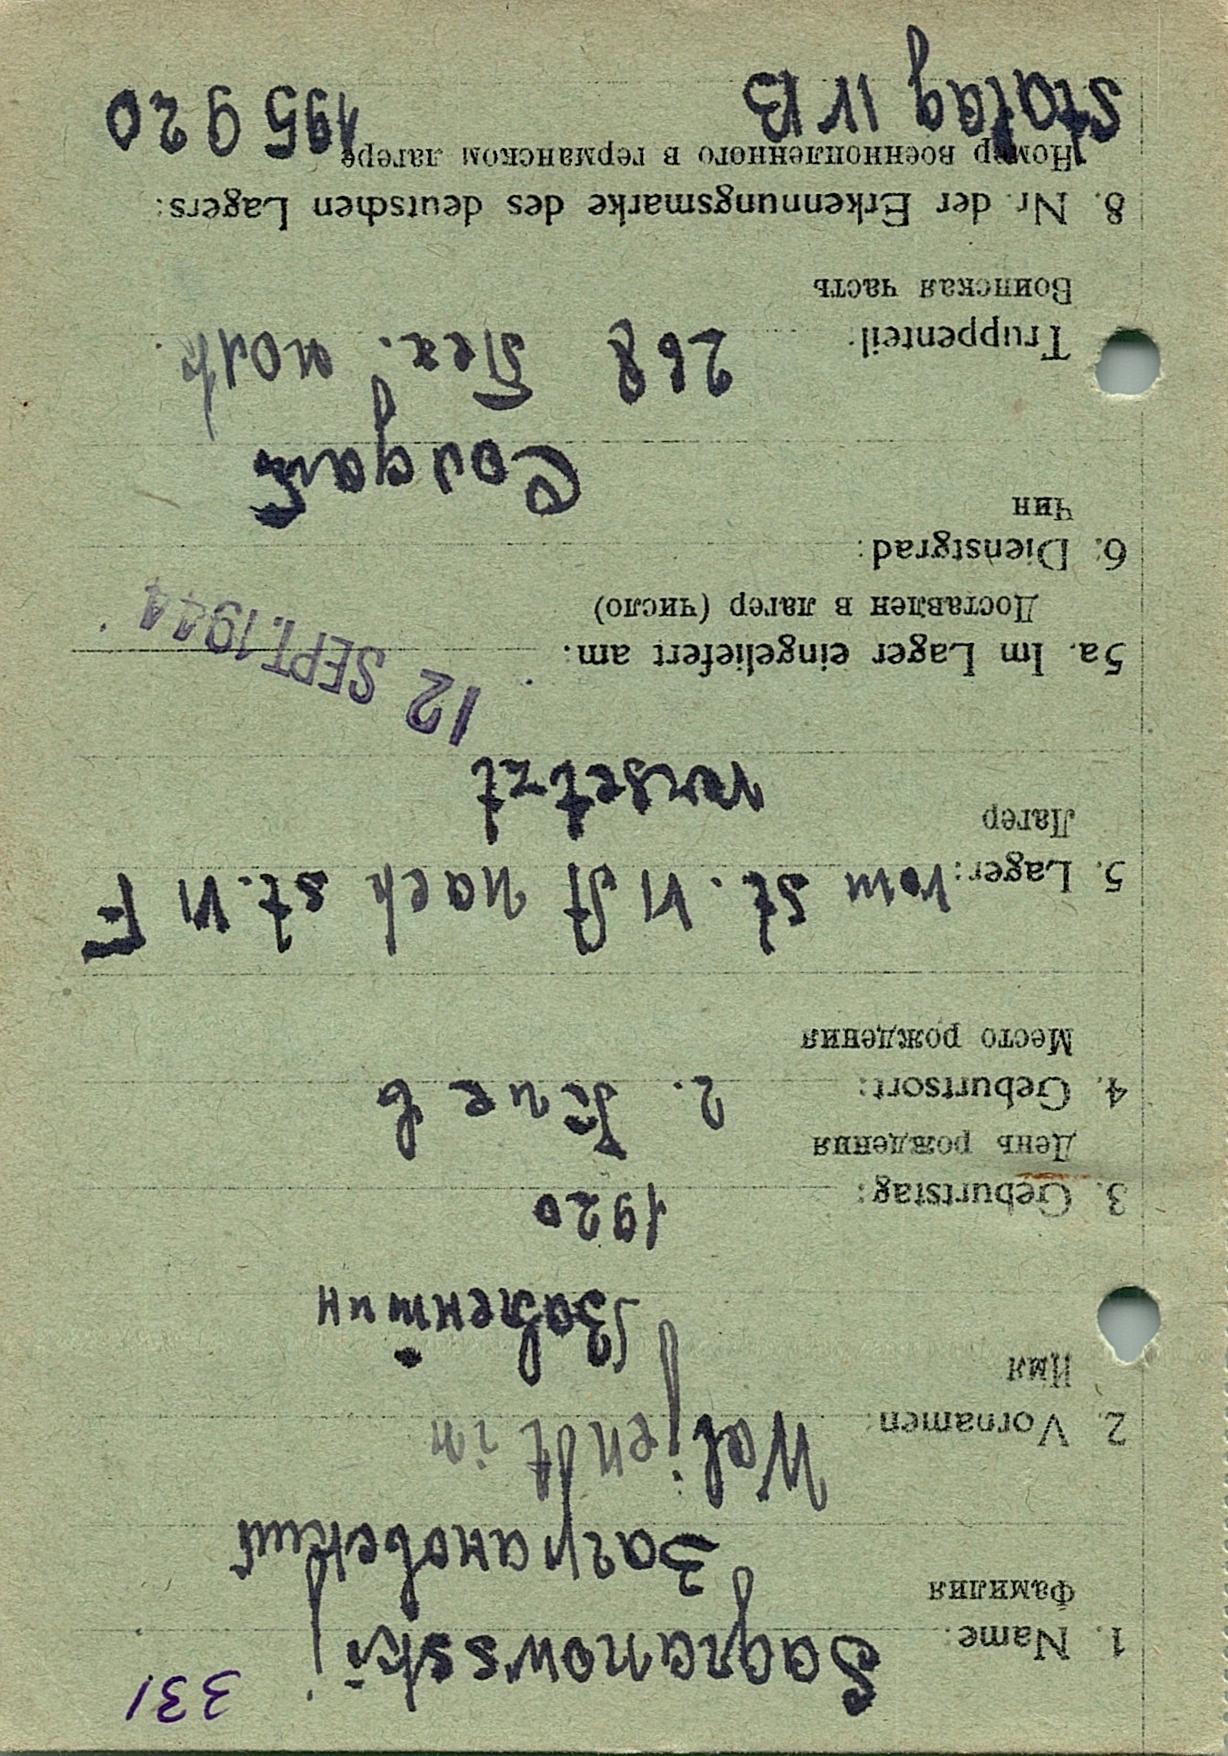 331
1. Name: Sagranowsskij
Фамилия Заграновский
2. Vornamen: Waljentin
Имя Валентин
3. Geburtstag: 1920
День рождения
4. Geburtsort: г. Киев
Место рождения
5. Lager: vom St. VI A nach St. VI F
Лагер versetzt
5a. Im Lager eingeliefert am: 12 SEPT. 1944
Доставлен в лагер (число)
6. Dienstgrad:
Чин Солдат
Truppenteil: 268
Воинская часть
8. Nr. der Erkennungsmarke des deutschen Lagers:
Номер военнопленного в германском лагере
Stalag IV B 195920